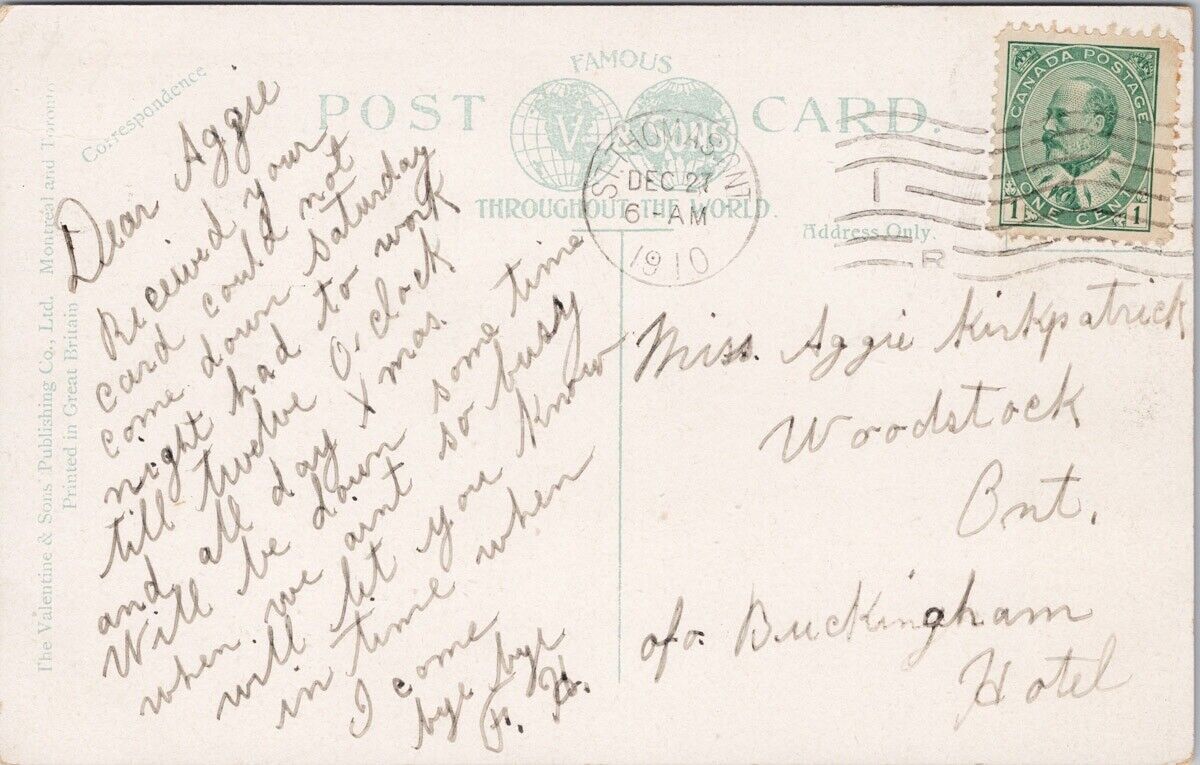 The Valentine & Sons' Publishing Co., Ltd. Montreal and Toronto
Printed in Great Britain
Correspondence
FAMOUS
POST CARD.
V & SONS
THROUGHOUT THE WORLD.
Address Only.
ST THOMAS. ONT
DEC 27
6-AM
1910
R
CANADA POSTAGE
1 ONE CENT 1
Dear Aggie
Received your
card could not
come down saturday
night had to work
till twelve O,clock
and all day Xmas.
Will be down some time
when we aint so busy
will let you know
in time when
I come
bye bye
F. H.
Miss. Aggie Kirkpatrick
Woodstock
Ont.
c/o Buckingham
Hotel